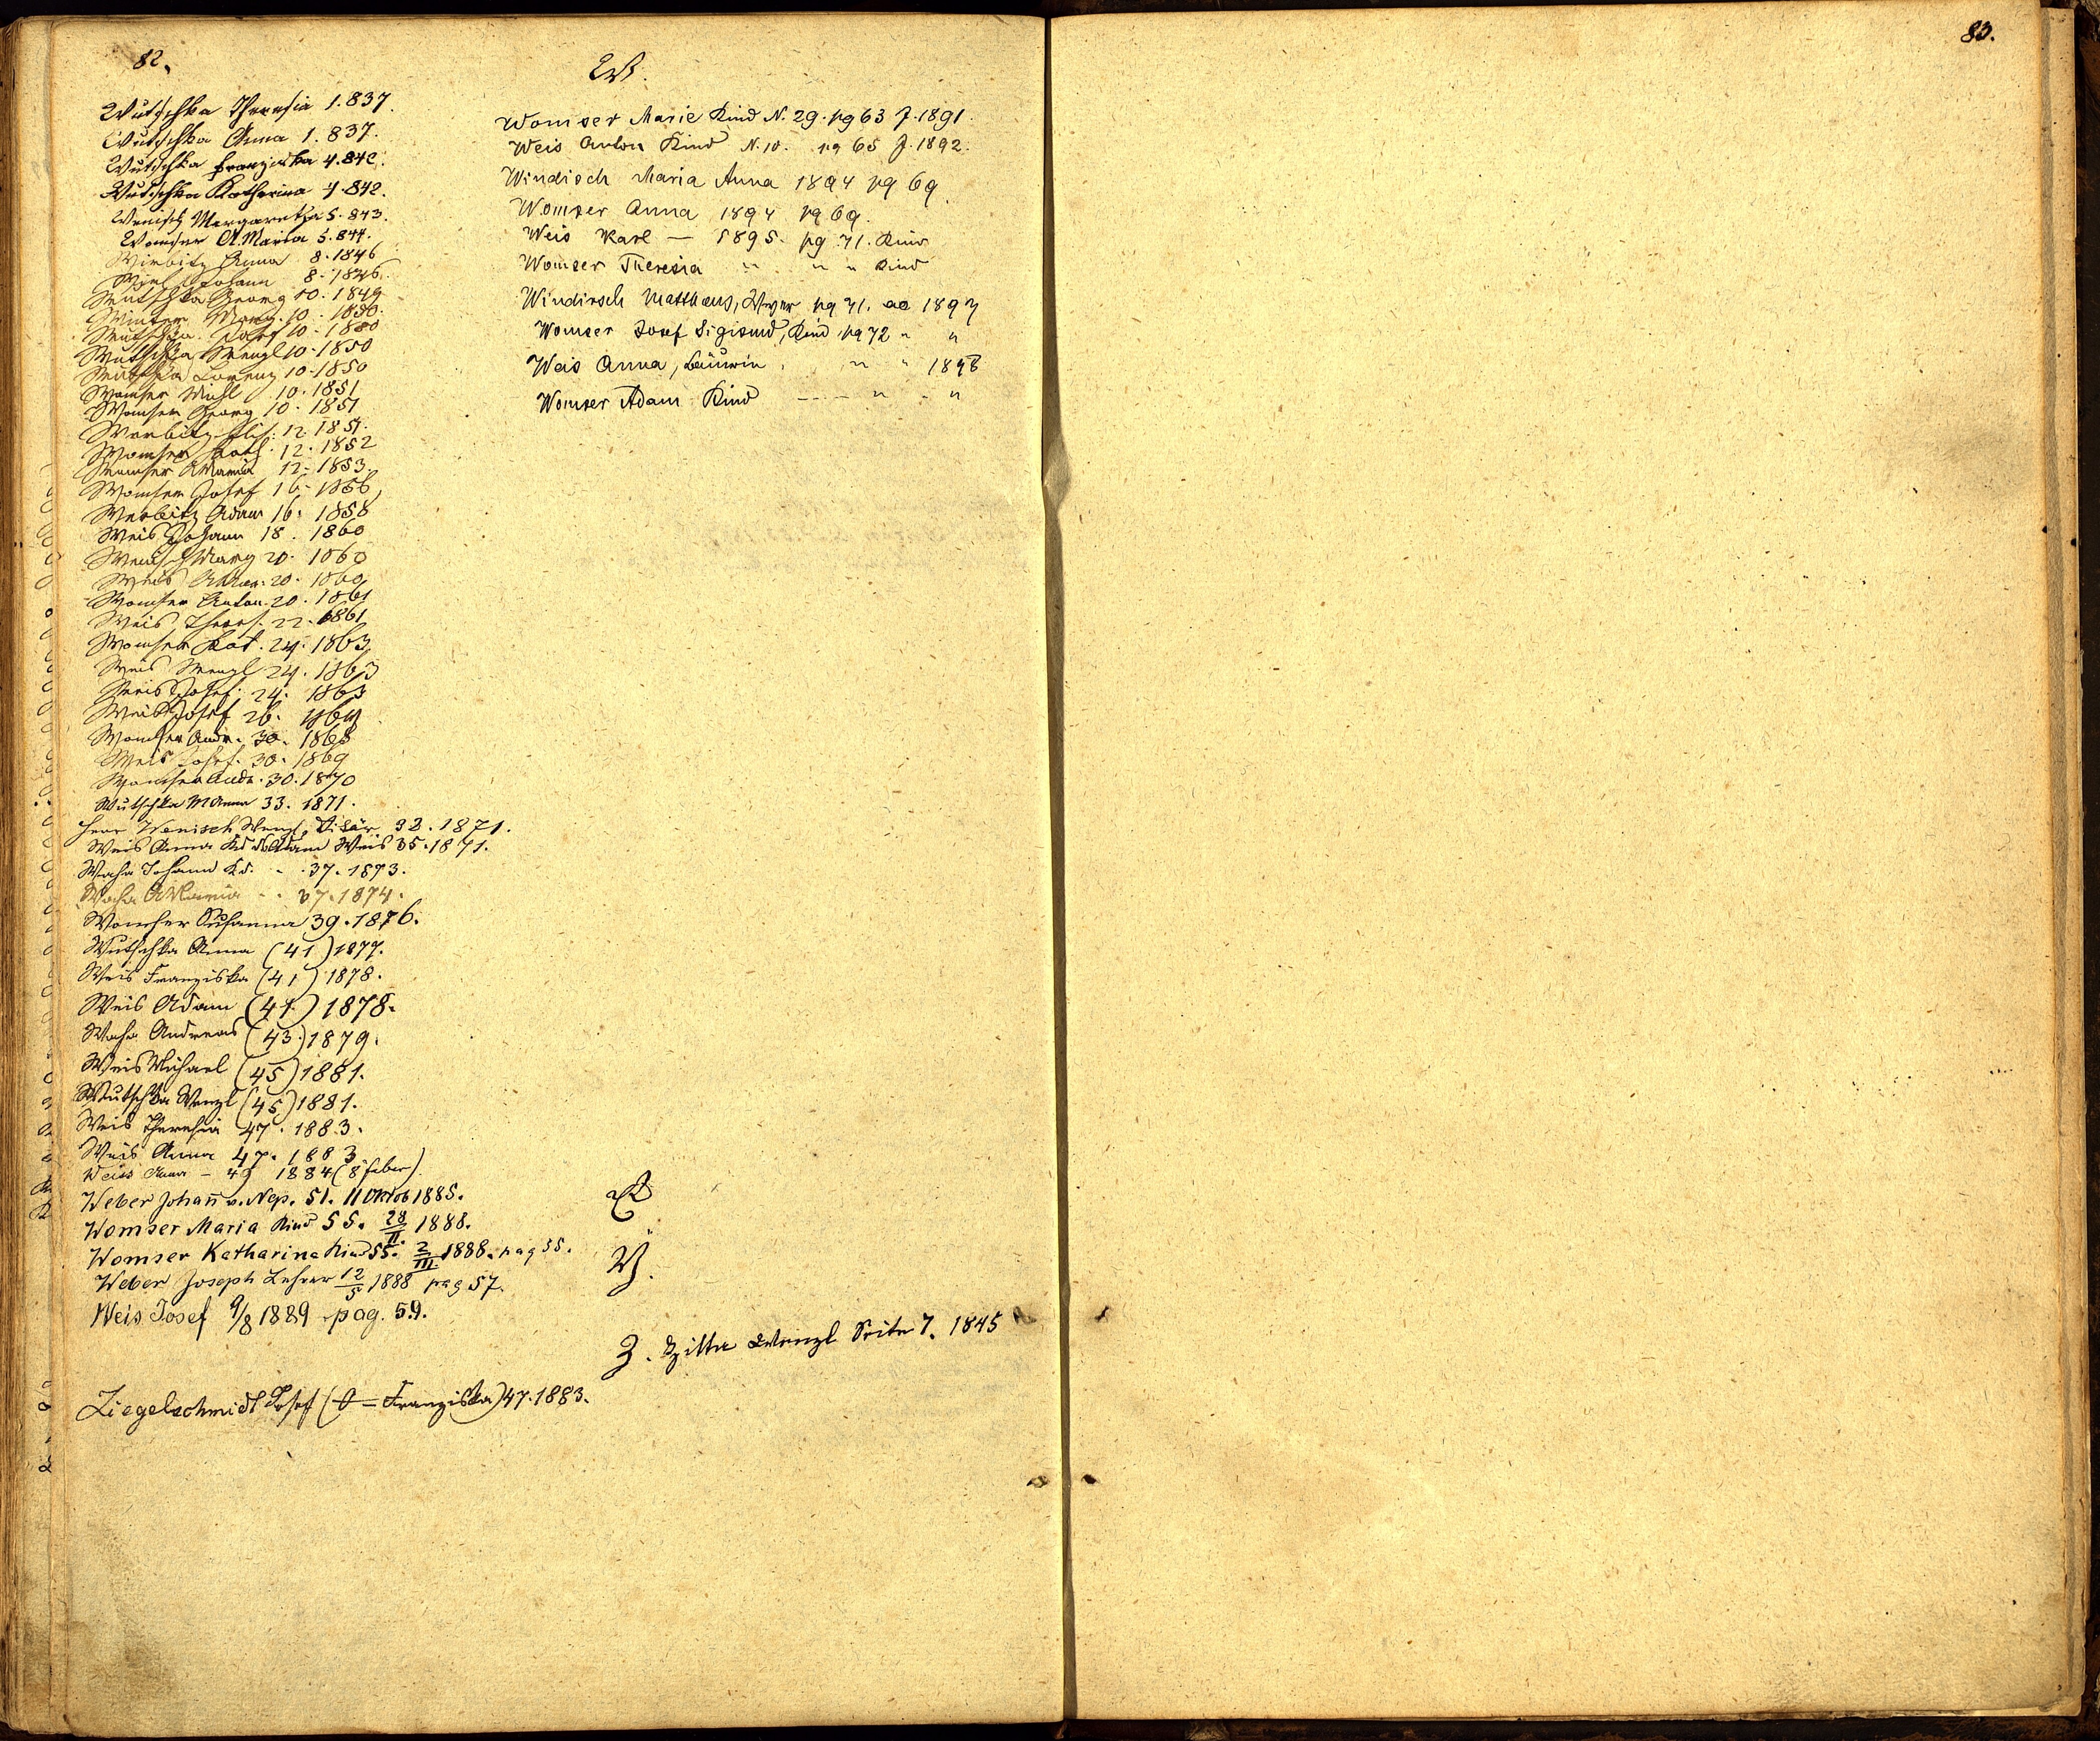 82.
W.
Wutschka Theresia 1.837.
Wutschka Anna 1.837.
Wutschka Franziska 4.842.
Wutschka Katharina 4.842.
Wenisch Margaretha 5.843.
Womser A.Maria 5.844.
Wirbitz Anna 8.1846
Johann 8.1846.
Wutschka Georg 10.1849
Winter Marg. 10.1850.
Wutschka Josef 10.1850
Wutschka Wenzl 10.1850
Wutschka Lorenz 10.1850
Womser Michl 10.1851
Womser Georg 10.1851
Werbitz Elis: 12.1851.
Womser Kath. 12.1852
Womser AMaria 12.1853.
Womser Josef 16.1856
Werbitz Adam 16.1858
Weis Johann 18.1860
Wenisch Marg 20.1860
Weis 20.1860
Womser Anton 20.1861
Weis Theres. 22.1861
Womser Kat. 24.1863
Weis Wenzl 24.1863
Weis Josef 24.1863
Weis Josef 26.1864
Womser Andr. 30.1868
Weis Josef 30.1869
Womser Andr. 30.1870
Wutschka MAnna 33.1871.
Herr Wenisch Wenzl, 32.1871.
Weis Anna Kd d Adam Weis 35.1871.
Waha Johann Kd. - .37.1873.
Waha AMaria - . 37.1874.
Womser Susanna 39.1876.
Wutschka Anna (41) 1877.
Weis Franziska (41) 1878.
Weis Adam (41.) 1878.
Waha Andreas (43.) 1879.
Weis Michael (45) 1881.
Wutschka Wenzl (45) 1881.
Weis Theresia 47.1883.
Weis Anna 47.1883
Weiss Anna - 49 1884 (8 feber).
Weber Johan̄ v. Nep. 51. 11 Oktob 1885.
Womser Maria Kind 55. 28/II. 1888.
Womser Katharina Kind 55. 2/III. 1888. pag 55.
Weber Joseph Lehrer 12/5 1888 pag 57.
Weis Josef 9/8 1889 pag. 59.
Ziegelschmidt Josef (O = Franziska) 47.1883.
Womser Marie Kind N. 29. pg 63 J. 1891.
Weis Anton Kind N. 10. pg 65 J. 1892.
Windisch Maria Anna 1894 pg 69
Womser Anna 1894 pg 69.
Weis Karl — 1895. pg 71. Kind
Womser Theresia " " " Kind
Windirsch Matthäus, pg 71. ae 1897
Womser Josef Sigismd, Kind pg 72 " "
Weis Anna, Bäurin " " 1898
Womser Adam Kind ---- " "
X
Y.
Z. Zitta Wenzl Seite 7. 1845
83.